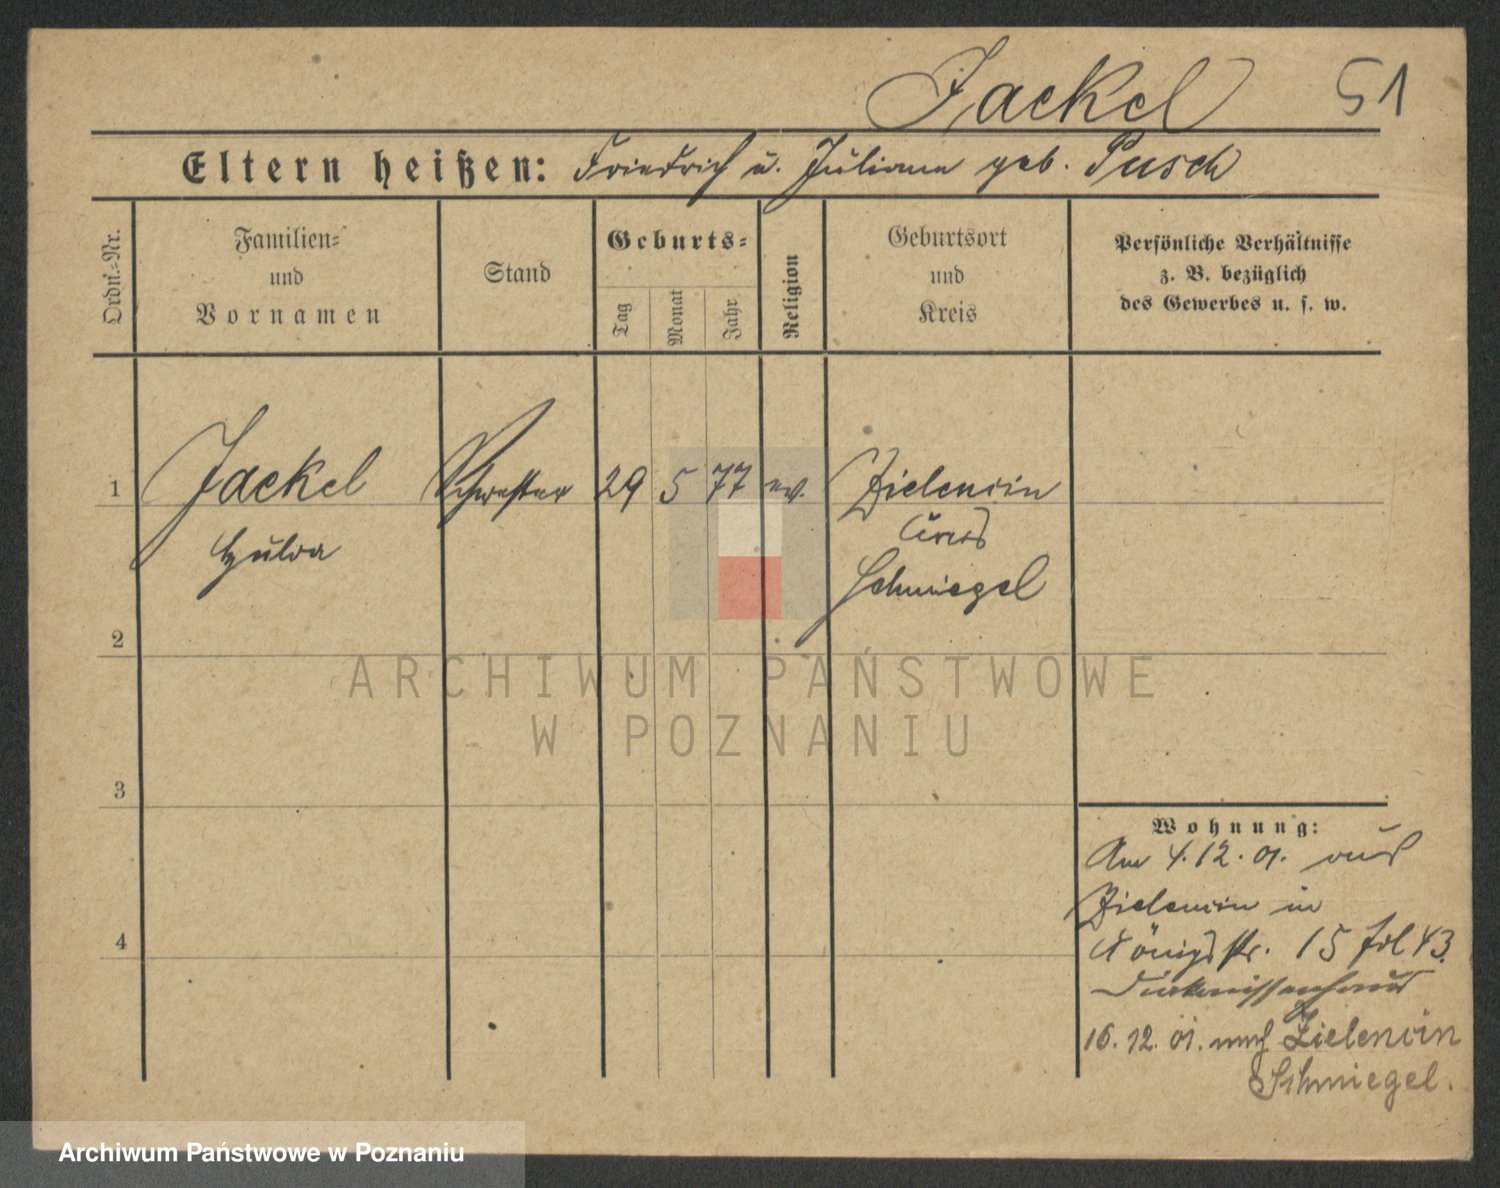 Jaekel 51
Eltern heißen: Friedrich u. Juliana geb. Pusch
Ordn.-Nr.
Familien-
und
Vornamen
Stand
Geburts-
Tag
Monat
Jahr
Religion
Geburtsort
und
Kreis
Persönliche Verhältnisse
z. B. bezüglich
des Gewerbes u. s. w.
1 Jaekel Schwester 29 5 77 ev. Zielencin
Hulda
Schmiegel
2
ARCHIWUM PAŃSTWOWE
W POZNANIU
3
Wohnung:
Am 4.12.01. aus
Zielencin in
Königstr. 15
4
Diakonissenhaus
16.12.01. nach Zielencin
Schmiegel.
Archiwum Państwowe w Poznaniu